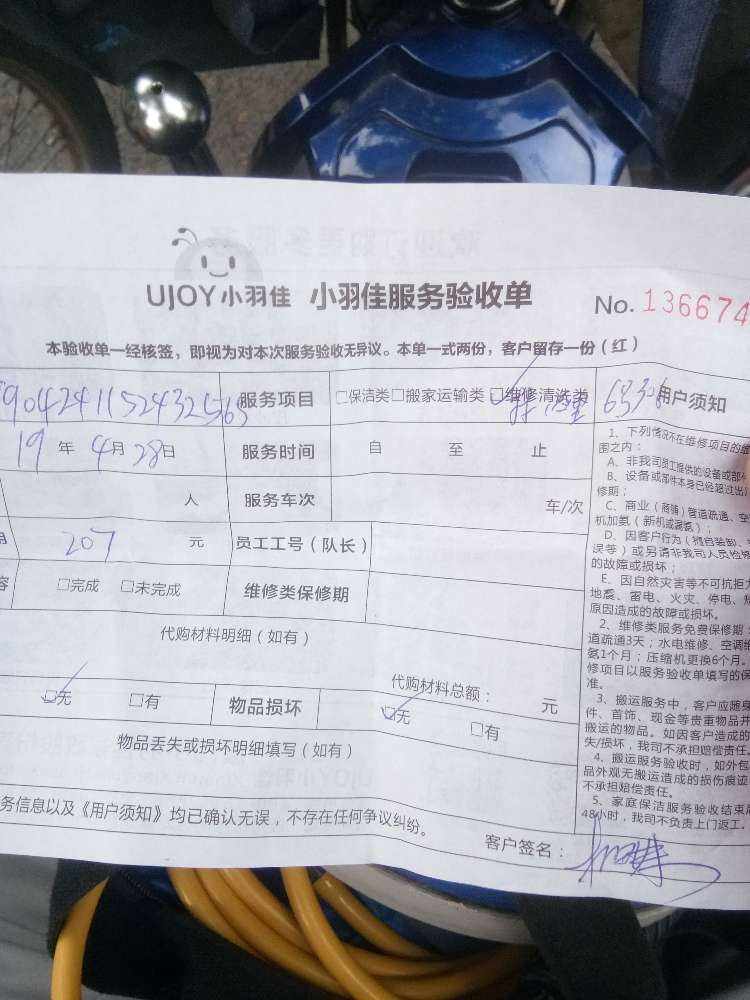 UJOY小羽佳 小羽佳服务验收单 No. 136674
本验收单一经核签，即视为对本次服务验收无异议。本单一式两份，客户留存一份（红）
904241152432565 服务项目 □保洁类□搬家运输类□维修清洗类
19年4月28日 服务时间 自 至 止
人 服务车次 车/次
207 元 员工工号（队长）
□完成 □未完成 维修类保修期
代购材料明细（如有）
代购材料总额： 元
□无 □有 物品损坏 □无 □有
物品丢失或损坏明细填写（如有）
务信息以及《用户须知》均已确认无误，不存在任何争议纠纷。
客户签名：
用户须知
1、下列情况不在维修项目的维
围之内：
A、非我司员工提供的设备或部
B、设备或部件本身已经超过出
修期；
C、商业（商铺）管道疏通、空
机加氨（新机或漏氨）；
D、因客户行为（擅自装卸、
误等）或另请非我司人员检修
的故障或损坏；
E、因自然灾害等不可抗拒
地震、雷电、火灾、停电、
原因造成的故障或损坏。
2、维修类服务免费保修期：
道疏通3天；水电维修、空调
氨1个月；压缩机更换6个月。
修项目以服务验收单填写的保
准。
3、搬运服务中，客户应随身
件、首饰、现金等贵重物品并
搬运的物品。如因客户造成的
失/损坏，我司不承担赔偿责任。
4、搬运服务验收时，如外包
品外观无搬运造成的损伤痕迹
不承担赔偿责任。
5、家庭保洁服务验收结束
48小时，我司不负责上门返工。